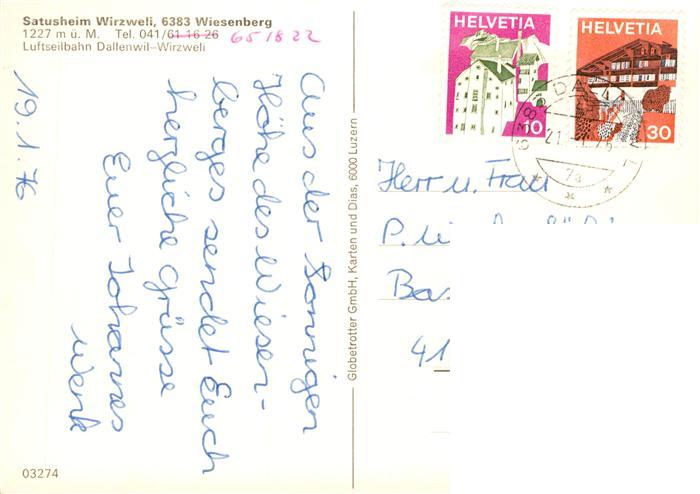 Satusheim Wirzweli, 6383 Wiesenberg
1227 m ü. M. Tel. 041/61 16 26 65 18 22
Luftseilbahn Dallenwil–Wirzweli
19.1.76
Aus der Sonnigen
Höhe des Wiesen-
berges sendet Euch
herzliche Grüsse
Euer Johannes
Wenk
03274
Globetrotter GmbH, Karten und Dias, 6000 Luzern
HELVETIA
10
HELVETIA
30
Herr u. Frau
P.
Bas
41